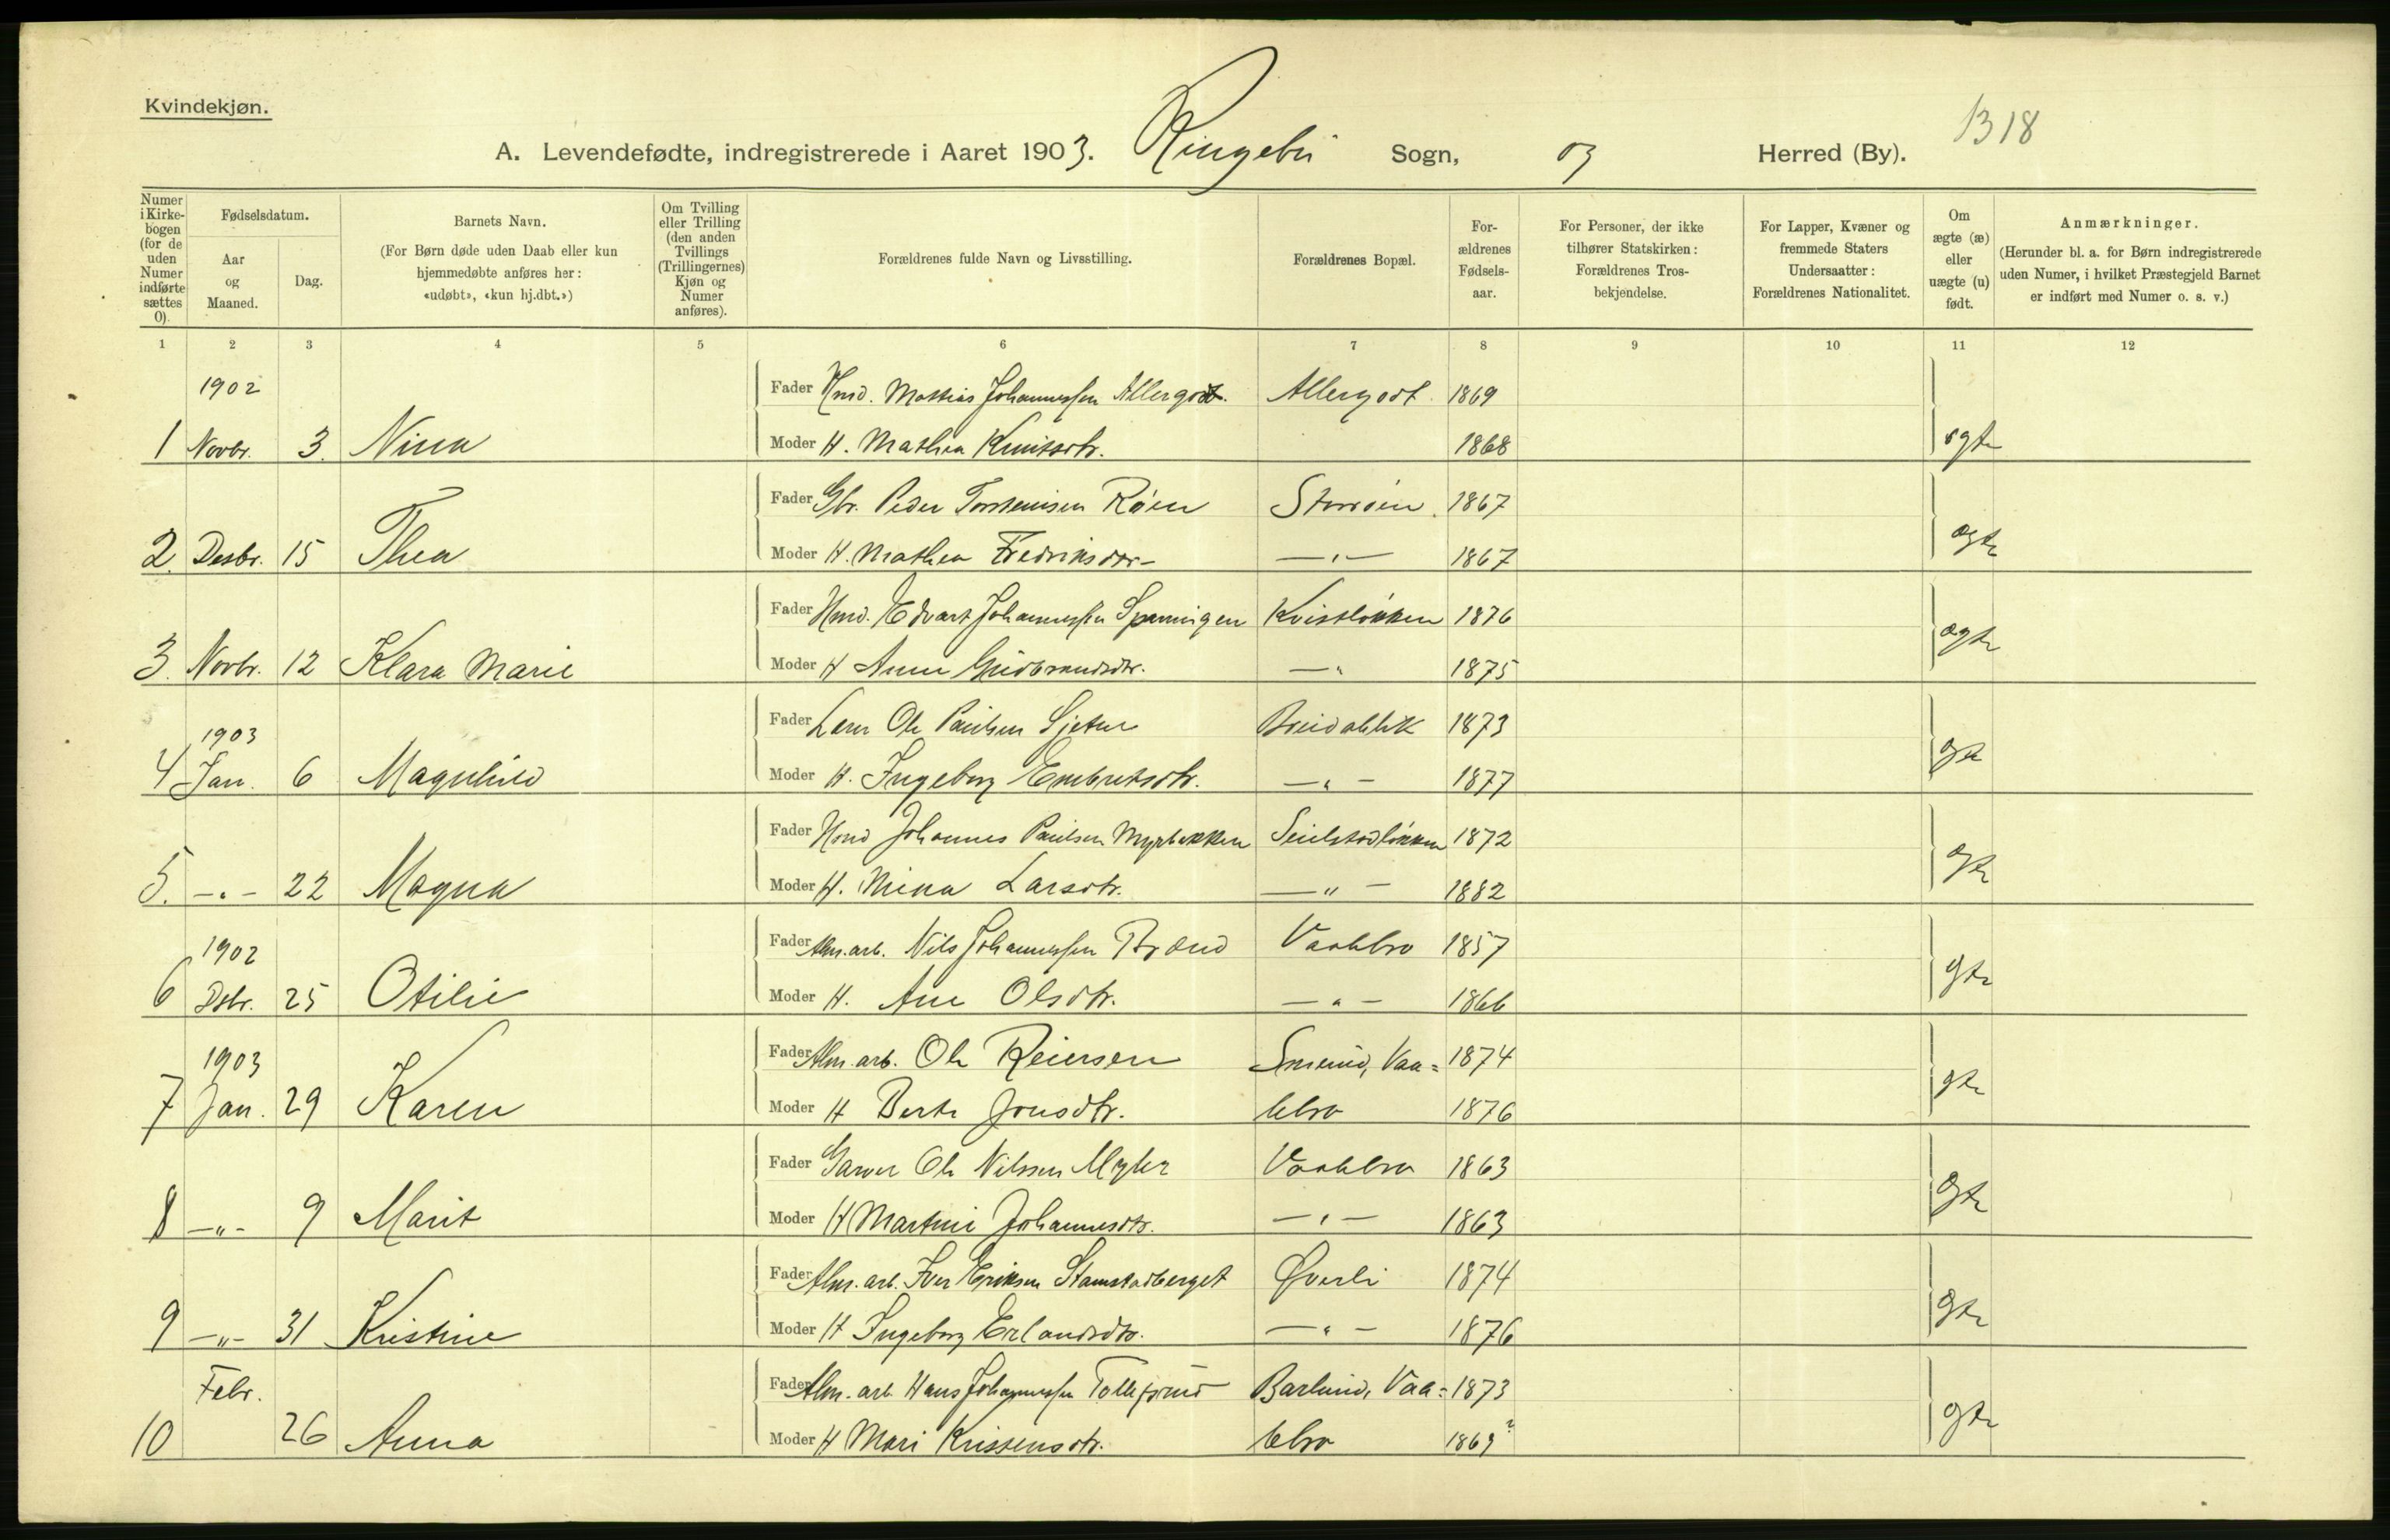 Kvindekjøn.
1318
A. Levendefødte, indregistrerede i Aaret 1903. Ringebu Sogn, og Herred (By).
Numer i Kirkebogen (for de uden Numer indførte sættes 0).
Fødselsdatum.
Aar og Maaned.
Dag.
Barnets Navn.
(For Børn døde uden Daab eller kun hjemmedøbte anføres her: «udøbt», «kun hj.dbt.»)
Om Tvilling eller Trilling (den anden Tvillings (Trillingernes) Kjøn og Numer anføres).
Forældrenes fulde Navn og Livsstilling.
Forældrenes Bopæl.
For-ældrenes Fødsels-aar.
For Personer, der ikke tilhører Statskirken: Forældrenes Tros-bekjendelse.
For Lapper, Kvæner og fremmede Staters Undersaatter: Forældrenes Nationalitet.
Om ægte (æ) eller uægte (u) født.
Anmærkninger.
(Herunder bl. a. for Børn indregistrerede uden Numer, i hvilket Præstegjeld Barnet er indført med Numer o. s. v.)
1 2 3 4 5 6 7 8 9 10 11 12
1902 Fader Hmd. Mathias Johannessen Allergodt. Allergodt. 1869
1 Novbr. 3. Nina Moder H. Mathea Knutsdtr. 1868 ægte
Fader Gbr. Peder Torstensen Røen Storøen. 1867
2. Desbr. 15 Thea Moder H. Mathea Fredriksdtr- —"— 1867 ægte
Fader Hmd. Edvart Johannessen Spanningen Kvistløkken 1876
3. Novbr. 12 Klara Marie Moder H Anne Gudbrandsdtr. —" 1875 ægte
1903 Fader Lærer Ole Paulsen Breidablik 1873
4 Jan. 6 Magnhild Moder H. Ingeborg Embretsdtr. —"— 1877 gte
Fader Hmd Johannes Paulsen Myrbakken Seielstadløkken 1872
5. —"— 22 Magna Moder H. Mina Larsdtr. —"— 1882 gte
1902 Fader Alm. arb. Nils Johannessen Brænd Vaalebro 1857
6 Dsbr. 25 Otilie Moder H. Ane Olsdtr. —"— 1866 gte
1903 Fader Alm. arb. Ole Reiersen Vaa= 1874
7 Jan. 29 Karen Moder H Berte Jonsdtr. lebro 1876 gte
Fader Garver Ole Nilssen Myhr Vaalebro 1863
8 —"— 9 Marit Moder H Martine Johannesdtr. —"— 1863 gte
Fader Alm. arb. Iver Eriksen Stamstadberget Øverli 1874
9 —"— 31 Kristine Moder H Ingeborg Erlandsdtr. —"— 1876 gte
Febr. Fader Alm. arb. Hans Johannessen Tollefsrud Barlund, Vaa= 1873
10 26 Anna Moder H Mari Kristensdtr. lebro 1869? gte